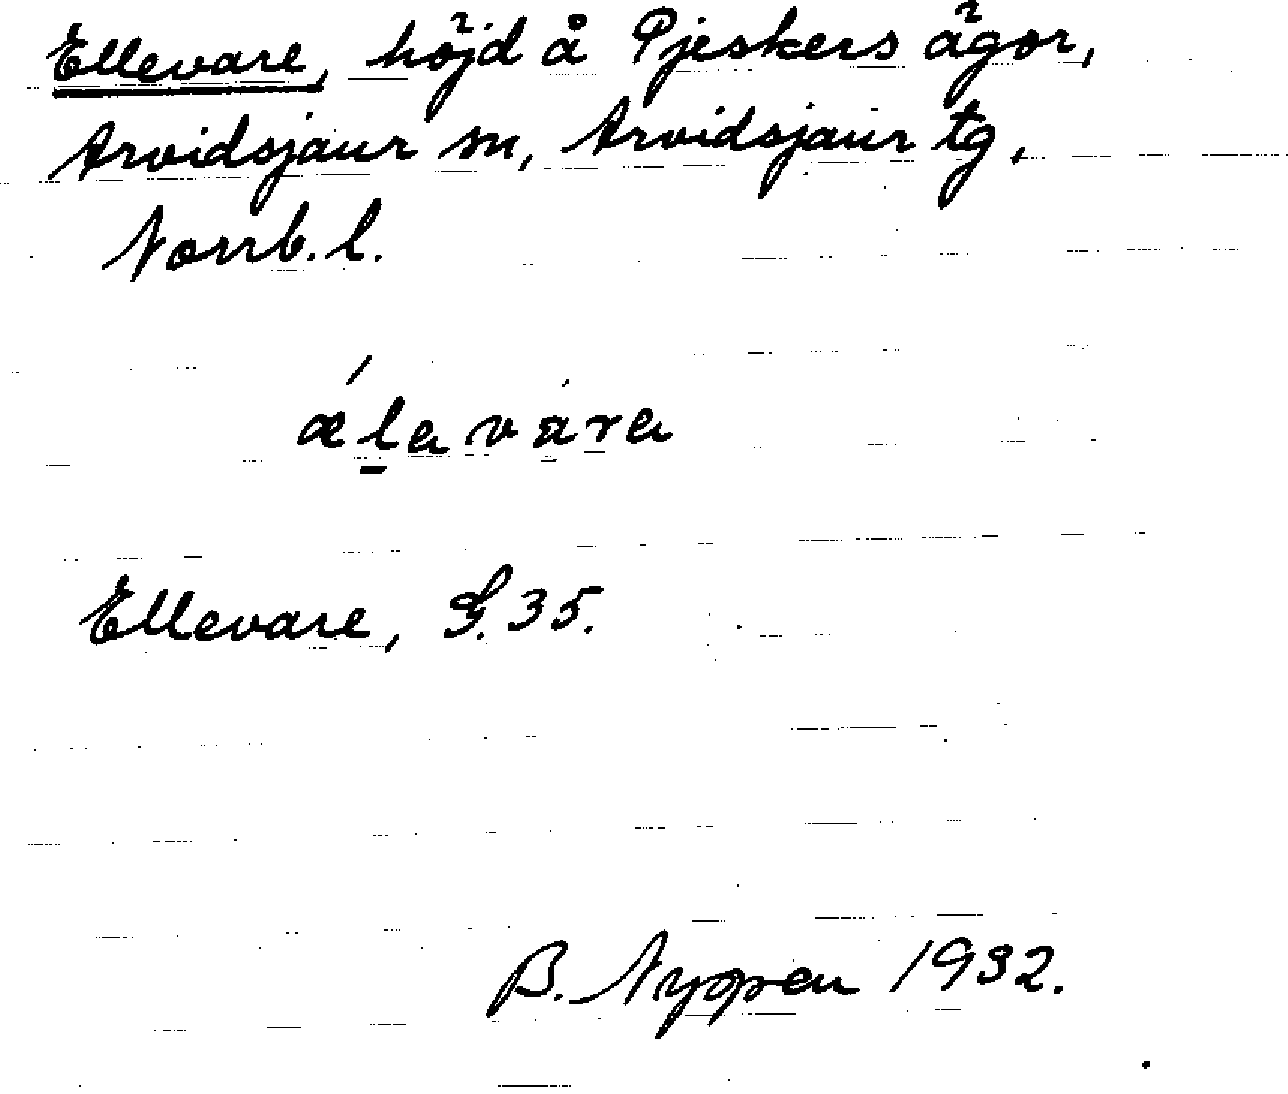 Ellevare, höjd å Pjeskers ägor,
Arvidsjaur sn, Arvidsjaur tg,
Norrb. l.
ǽl̲a vára
Ellevare, G. 35.
B. Nyppen 1932.